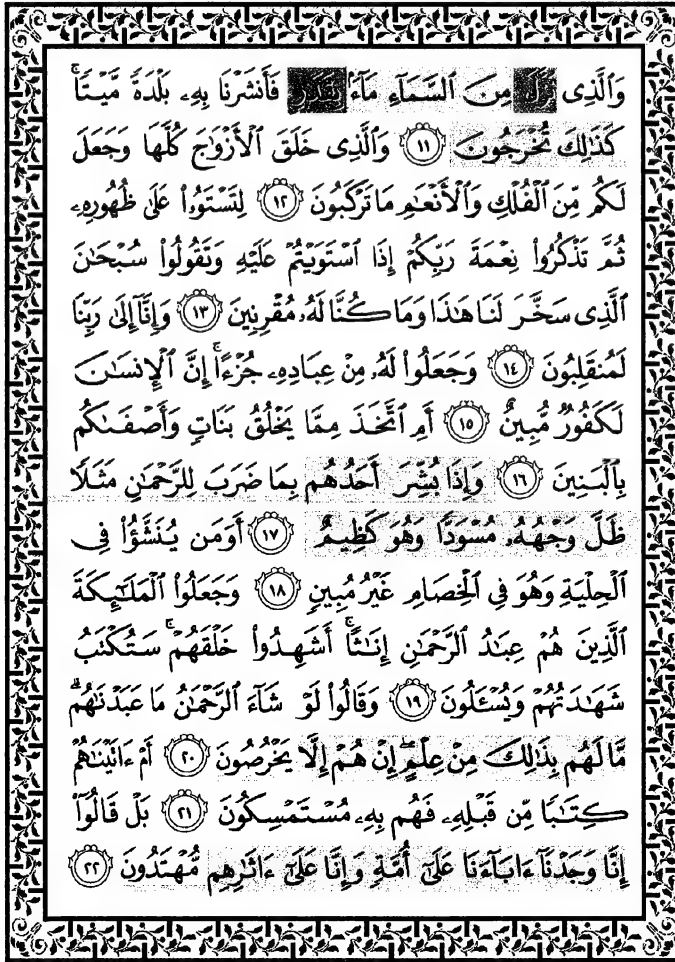 وَالَّذِى نَزَّلَ مِنَ ٱلسَّمَآءِ مَآءًۢ بِقَدَرٍ فَأَنشَرْنَا بِهِۦ بَلْدَةً مَّيْتًاۚ
كَذَٰلِكَ تُخْرَجُونَ ۝١١ وَٱلَّذِى خَلَقَ ٱلْأَزْوَٰجَ كُلَّهَا وَجَعَلَ
لَكُم مِّنَ ٱلْفُلْكِ وَٱلْأَنْعَٰمِ مَا تَرْكَبُونَ ۝١٢ لِتَسْتَوُۥا۟ عَلَىٰ ظُهُورِهِۦ
ثُمَّ تَذْكُرُوا۟ نِعْمَةَ رَبِّكُمْ إِذَا ٱسْتَوَيْتُمْ عَلَيْهِ وَتَقُولُوا۟ سُبْحَٰنَ
ٱلَّذِى سَخَّرَ لَنَا هَٰذَا وَمَا كُنَّا لَهُۥ مُقْرِنِينَ ۝١٣ وَإِنَّآ إِلَىٰ رَبِّنَا
لَمُنقَلِبُونَ ۝١٤ وَجَعَلُوا۟ لَهُۥ مِنْ عِبَادِهِۦ جُزْءًاۚ إِنَّ ٱلْإِنسَٰنَ
لَكَفُورٌ مُّبِينٌ ۝١٥ أَمِ ٱتَّخَذَ مِمَّا يَخْلُقُ بَنَاتٍ وَأَصْفَىٰكُم
بِٱلْبَنِينَ ۝١٦ وَإِذَا بُشِّرَ أَحَدُهُم بِمَا ضَرَبَ لِلرَّحْمَٰنِ مَثَلًا
ظَلَّ وَجْهُهُۥ مُسْوَدًّا وَهُوَ كَظِيمٌ ۝١٧ أَوَمَن يُنَشَّؤُا۟ فِى
ٱلْحِلْيَةِ وَهُوَ فِى ٱلْخِصَامِ غَيْرُ مُبِينٍ ۝١٨ وَجَعَلُوا۟ ٱلْمَلَٰٓئِكَةَ
ٱلَّذِينَ هُمْ عِبَٰدُ ٱلرَّحْمَٰنِ إِنَٰثًاۚ أَشَهِدُوا۟ خَلْقَهُمْۚ سَتُكْتَبُ
شَهَٰدَتُهُمْ وَيُسْـَٔلُونَ ۝١٩ وَقَالُوا۟ لَوْ شَآءَ ٱلرَّحْمَٰنُ مَا عَبَدْنَٰهُمۗ
مَّا لَهُم بِذَٰلِكَ مِنْ عِلْمٍۖ إِنْ هُمْ إِلَّا يَخْرُصُونَ ۝٢٠ أَمْ ءَاتَيْنَٰهُمْ
كِتَٰبًا مِّن قَبْلِهِۦ فَهُم بِهِۦ مُسْتَمْسِكُونَ ۝٢١ بَلْ قَالُوٓا۟
إِنَّا وَجَدْنَآ ءَابَآءَنَا عَلَىٰٓ أُمَّةٍ وَإِنَّا عَلَىٰٓ ءَاثَٰرِهِم مُّهْتَدُونَ ۝٢٢